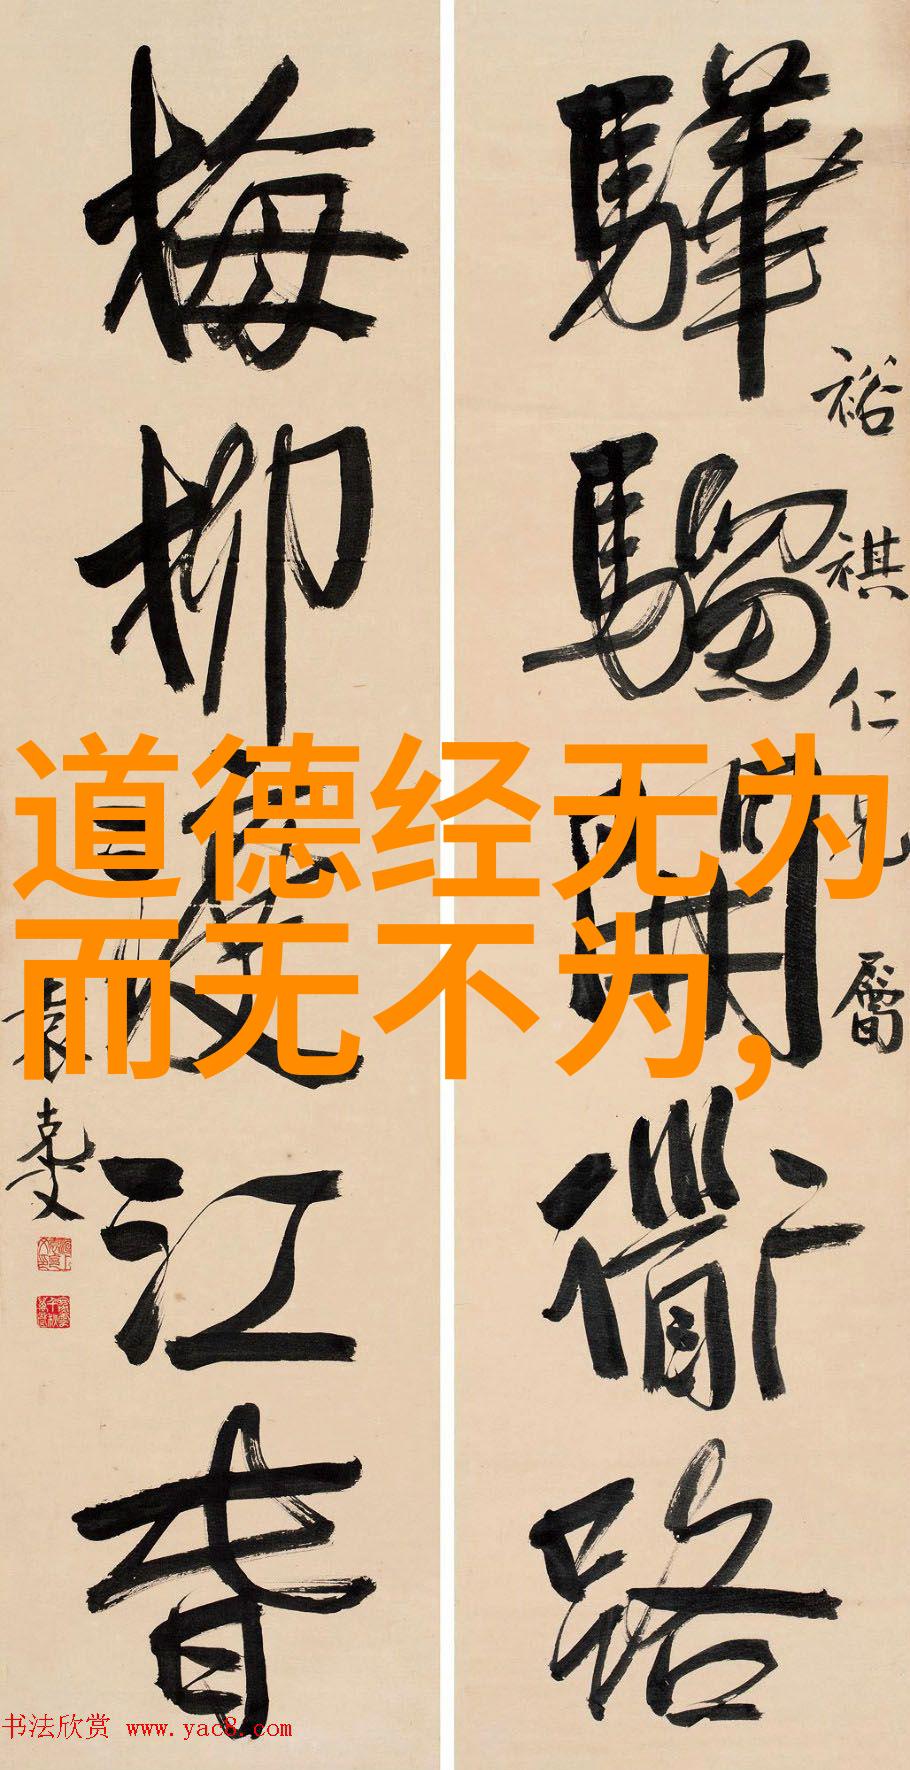 道德经无为
而无不为,
驊騮開衜路
裕祺仁兄屬
梅柳渡江春
袁克文
书法欣赏 www.yac8.com